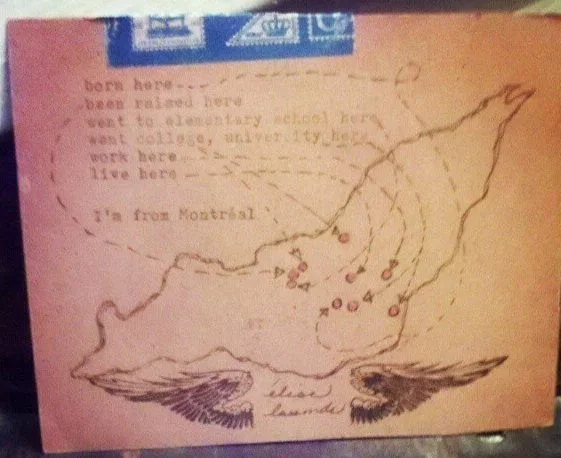 born here
been raised here
went to elementary school here
went college, university here
work here
live here
I'm from Montréal
élise